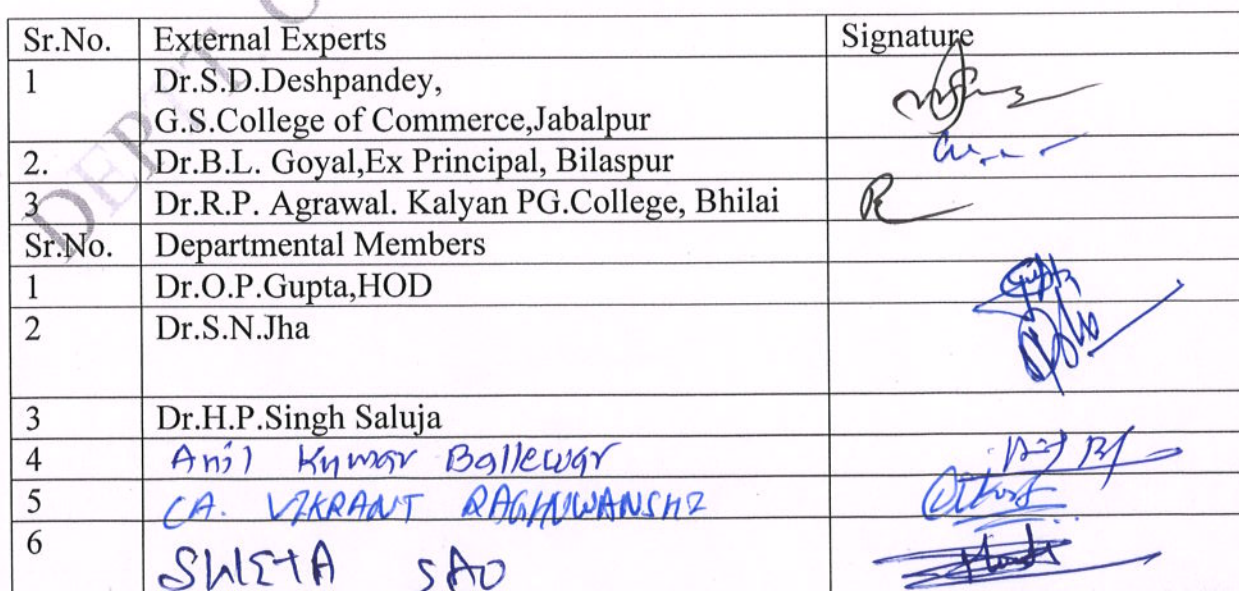 DEPT
Sr.No. External Experts Signature
1 Dr.S.D.Deshpandey,
G.S.College of Commerce,Jabalpur
2. Dr.B.L. Goyal,Ex Principal, Bilaspur
3 Dr.R.P. Agrawal. Kalyan PG.College, Bhilai
Sr.No. Departmental Members
1 Dr.O.P.Gupta,HOD
2 Dr.S.N.Jha
3 Dr.H.P.Singh Saluja
4 Anil Kumar Ballewar
5 CA. VIKRANT RAGHUWANSHI
6 SHWETA SAO